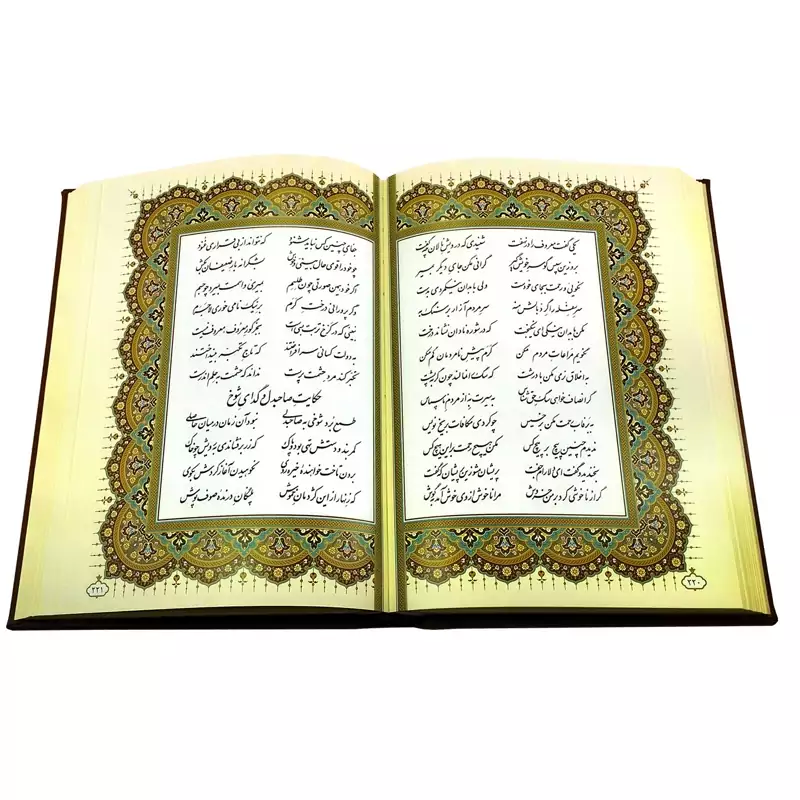 یکی گفت معروف را در نهفت شنیدی که درویش نالان چه گفت
برو زین سپس گو سر خویش گیر گرانی مکن جای دیگر بمیر
نکویی و رحمت بجای خودست ولی با بدان نیکمردی بدست
سر سفله را گرد بالش منه سر مردم آزار بر سنگ به
مکن با بدان نیکی ای نیکبخت که در شوره نادان نشاند درخت
نگویم مراعات مردم مکن کرم پیش نامردمان گم مکن
به اخلاق نرمی مکن با درشت که سگ را نمالند چون گربه پشت
گر انصاف خواهی سگ حق شناس به سیرت به از مردم ناسپاس
به برفاب رحمت مکن بر خسیس چو کردی مکافات بر یخ نویس
ندیدم چنین پیچ بر پیچ کس مکن هیچ رحمت بر این هیچ کس
بخندید و گفت ای دلارام جفت پریشان مشو زین پریشان که گفت
گر از ناخوشی کرد بر من خروش مرا ناخوش از وی خوش آمد بگوش
۲۲۰
جفای چنین کس نباید شنود که نتواند از بی قراری غنود
چو خود را قوی حال بینی و خوش به شکرانه بار ضعیفان بکش
اگر خود همین صورتی چون طلسم بمیری و اسمت بمیرد چو جسم
وگر پرورانی درخت کرم بر نیک نامی خوری لاجرم
نبینی که در کرخ تربت بسیست بجز گور معروف معروف نیست
به دولت کسانی سر افراختند که تاج تکبر بینداختند
تکبر کند مرد حشمت پرست نداند که حشمت به حلم اندرست
حکایت صاحبدل و گدای شوخ
طمع برد شوخی به صاحبدلی نبود آن زمان در میان حاصلی
کمربند و دستش تهی بود و پاک که زر برفشاندی به رویش چو خاک
برون تاخت خواهندهٔ خیره روی نکوهیدن آغاز کردش بکوی
که زنهار از این کژدمان خموش پلنگان درندهٔ صوف پوش
۲۲۱